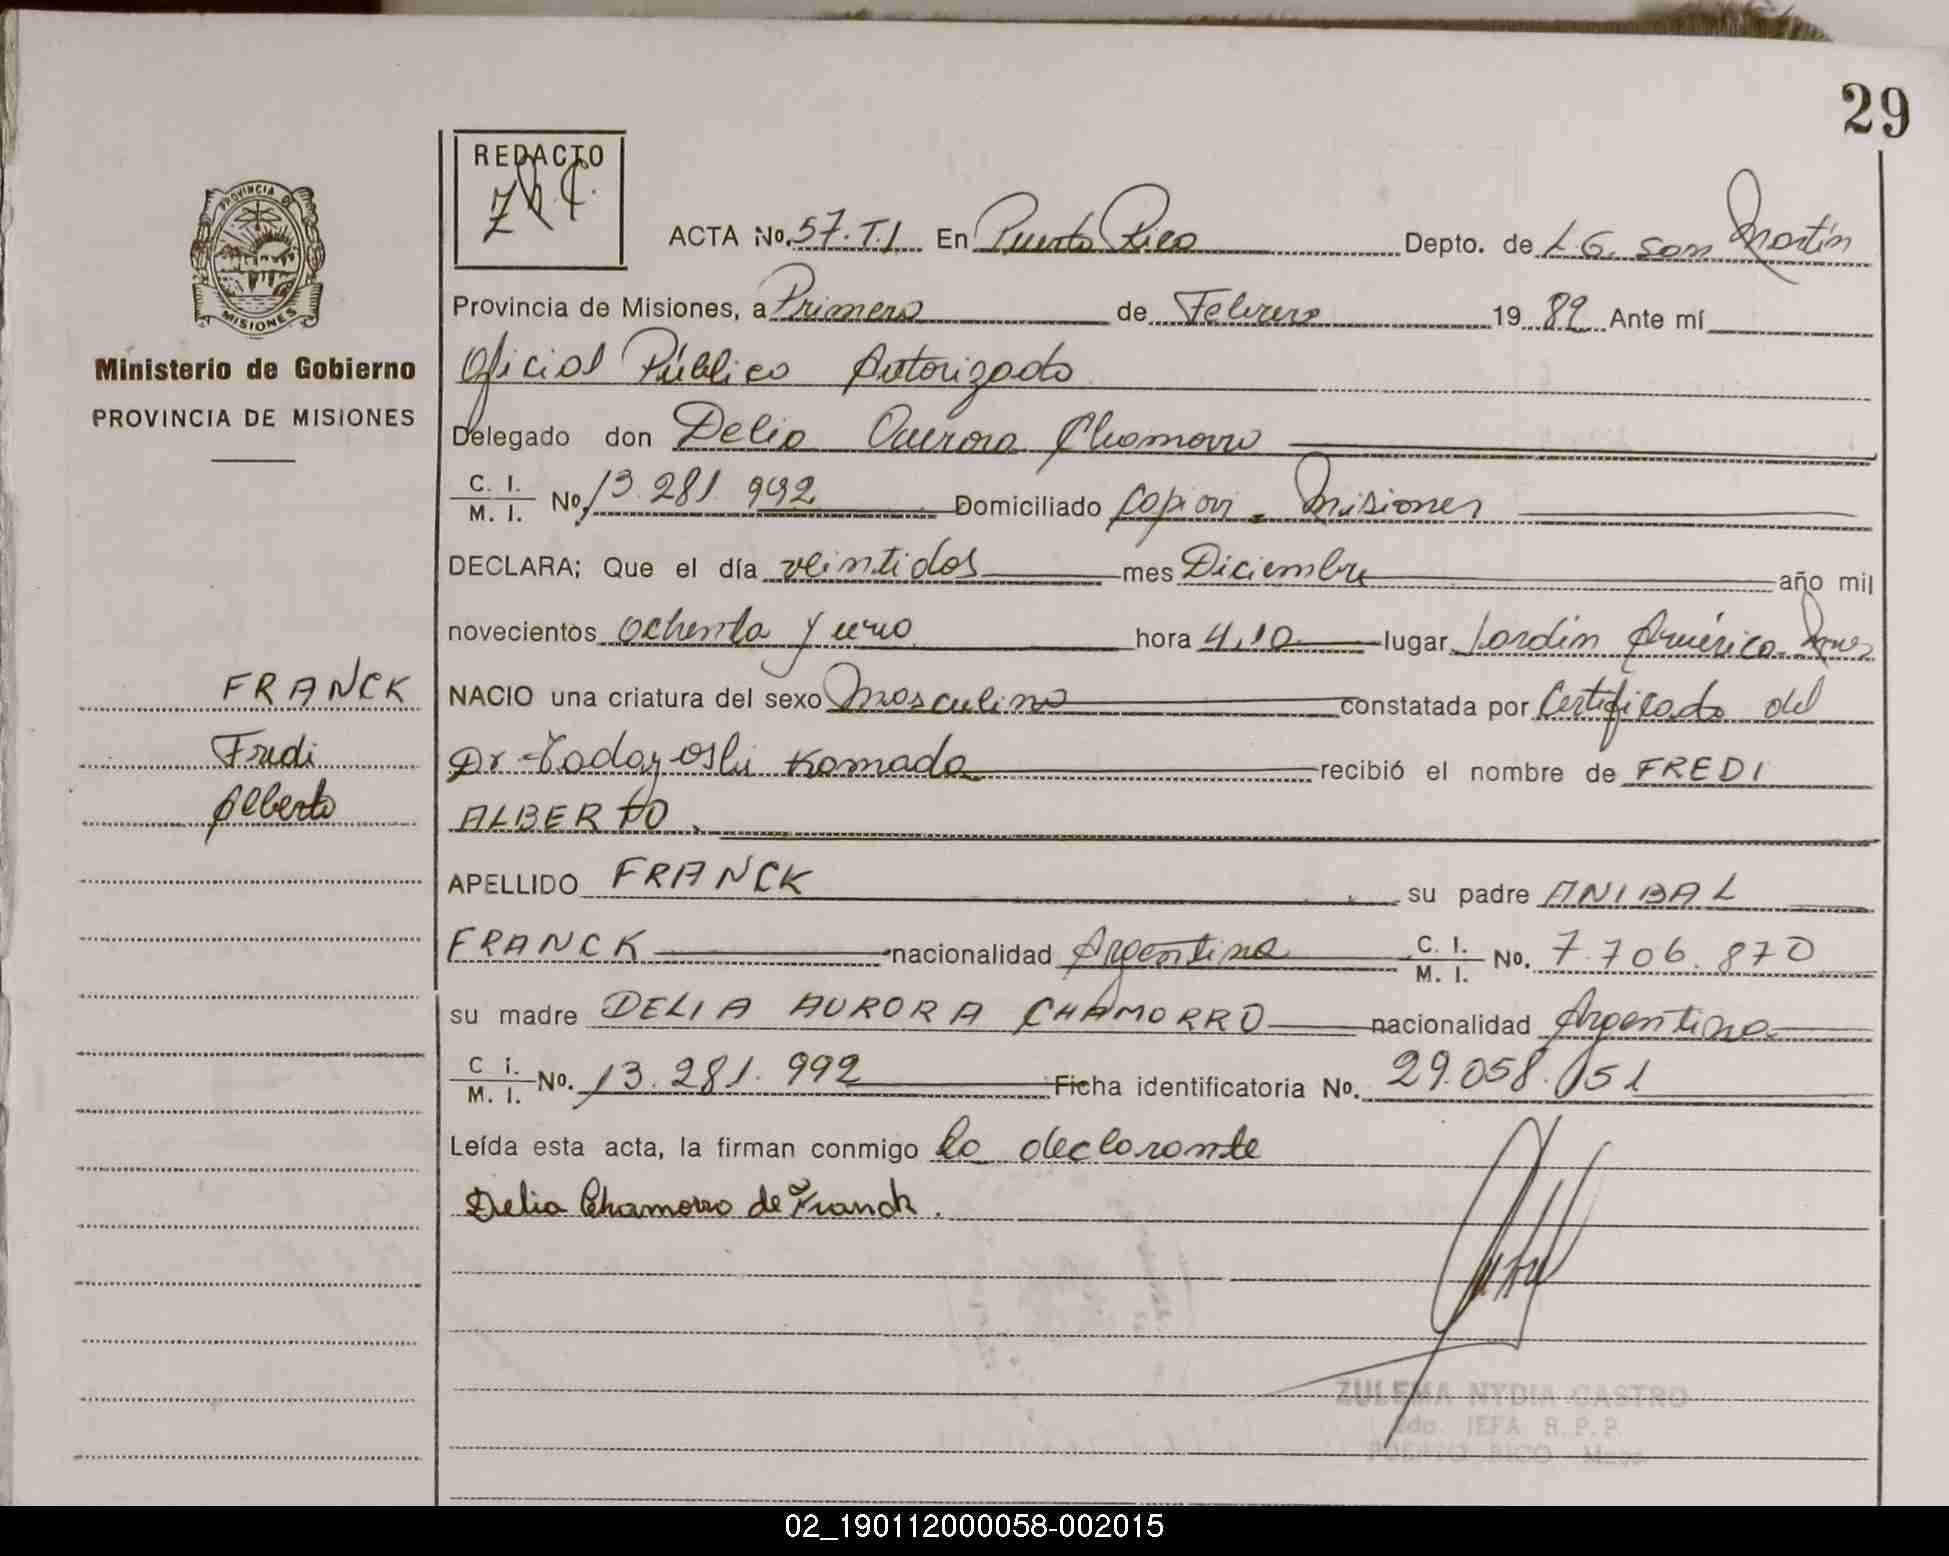 29
REDACTO
PROVINCIA DE
MISIONES
Ministerio de Gobierno
PROVINCIA DE MISIONES
ACTA No. 57. T.I. En Puerto Rico Depto. de L. G. San Martín
Provincia de Misiones, a Primero de Febrero 19 82 Ante mí
Oficial Público Autorizado
Delegado don Delia Aurora Chamorro
C. I.
M. I. No. 13.281.992 Domiciliado Capiovi - Misiones
DECLARA; Que el día veintidos mes Diciembre año mil
novecientos ochenta y uno hora 4,10 lugar Jardín América - Mnes
FRANCK
NACIO una criatura del sexo Masculino constatada por Certificado del
Fredi
Dr. Tadayoshi Kamada recibió el nombre de FREDI
Alberto
ALBERTO.
APELLIDO FRANCK su padre ANIBAL
FRANCK nacionalidad Argentina C. I.
M. I. No. 7.706.870
su madre DELIA AURORA CHAMORRO nacionalidad Argentina
C. I.
M. I. No. 13.281.992 Ficha identificatoria No. 29.058.151
Leída esta acta, la firman conmigo la declarante
Delia Chamorro de Franck.
ZULEMA NYDIA CASTRO
2do. JEFA R.P.P.
PUERTO RICO Mnes
02_190112000058-002015